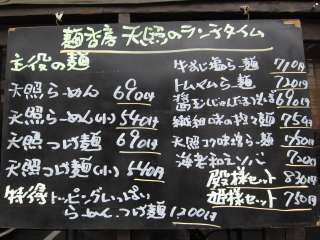 麺香房 天照のランチタイム
主役の麺
天照らーめん 690円
天照らーめん(小) 540円
天照つけ麺 690円
天照つけ麺(小) 540円
特得トッピングいっぱい
らーめん、つけ麺 1,200円
塩らー麺 710円
トムヤムらー麺 720円
690円
750円
天照コク味噌らー麺 750円
海老和えソバ 720円
殿様セット 830円
姫様セット 750円